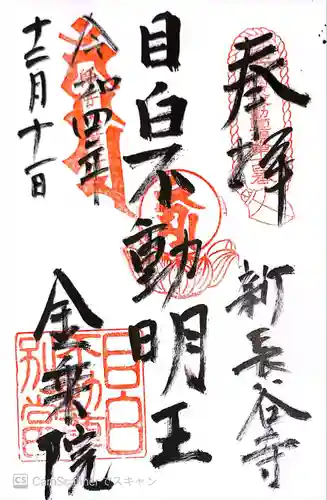 奉拝
新長谷寺
目白不動明王
令和四年
十二月十一日
金乗院
目白
不動
別当
CS CamScannerでスキャン